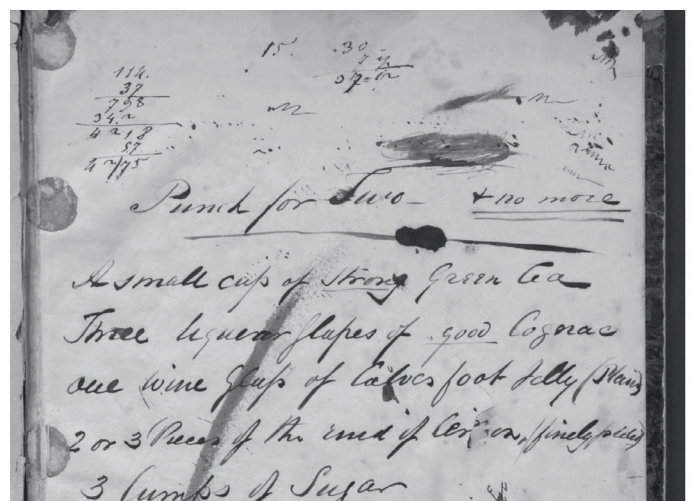 15. .30
114.
37
798
342
4218
57
Punch for Two - & no more
A small cup of strong Green Tea
Three liqueur glasses of good Cognac
one wine glass of Calves foot Jelly (Plain)
2 or 3 Pieces of the rind of (finely
3 Lumps of Sugar